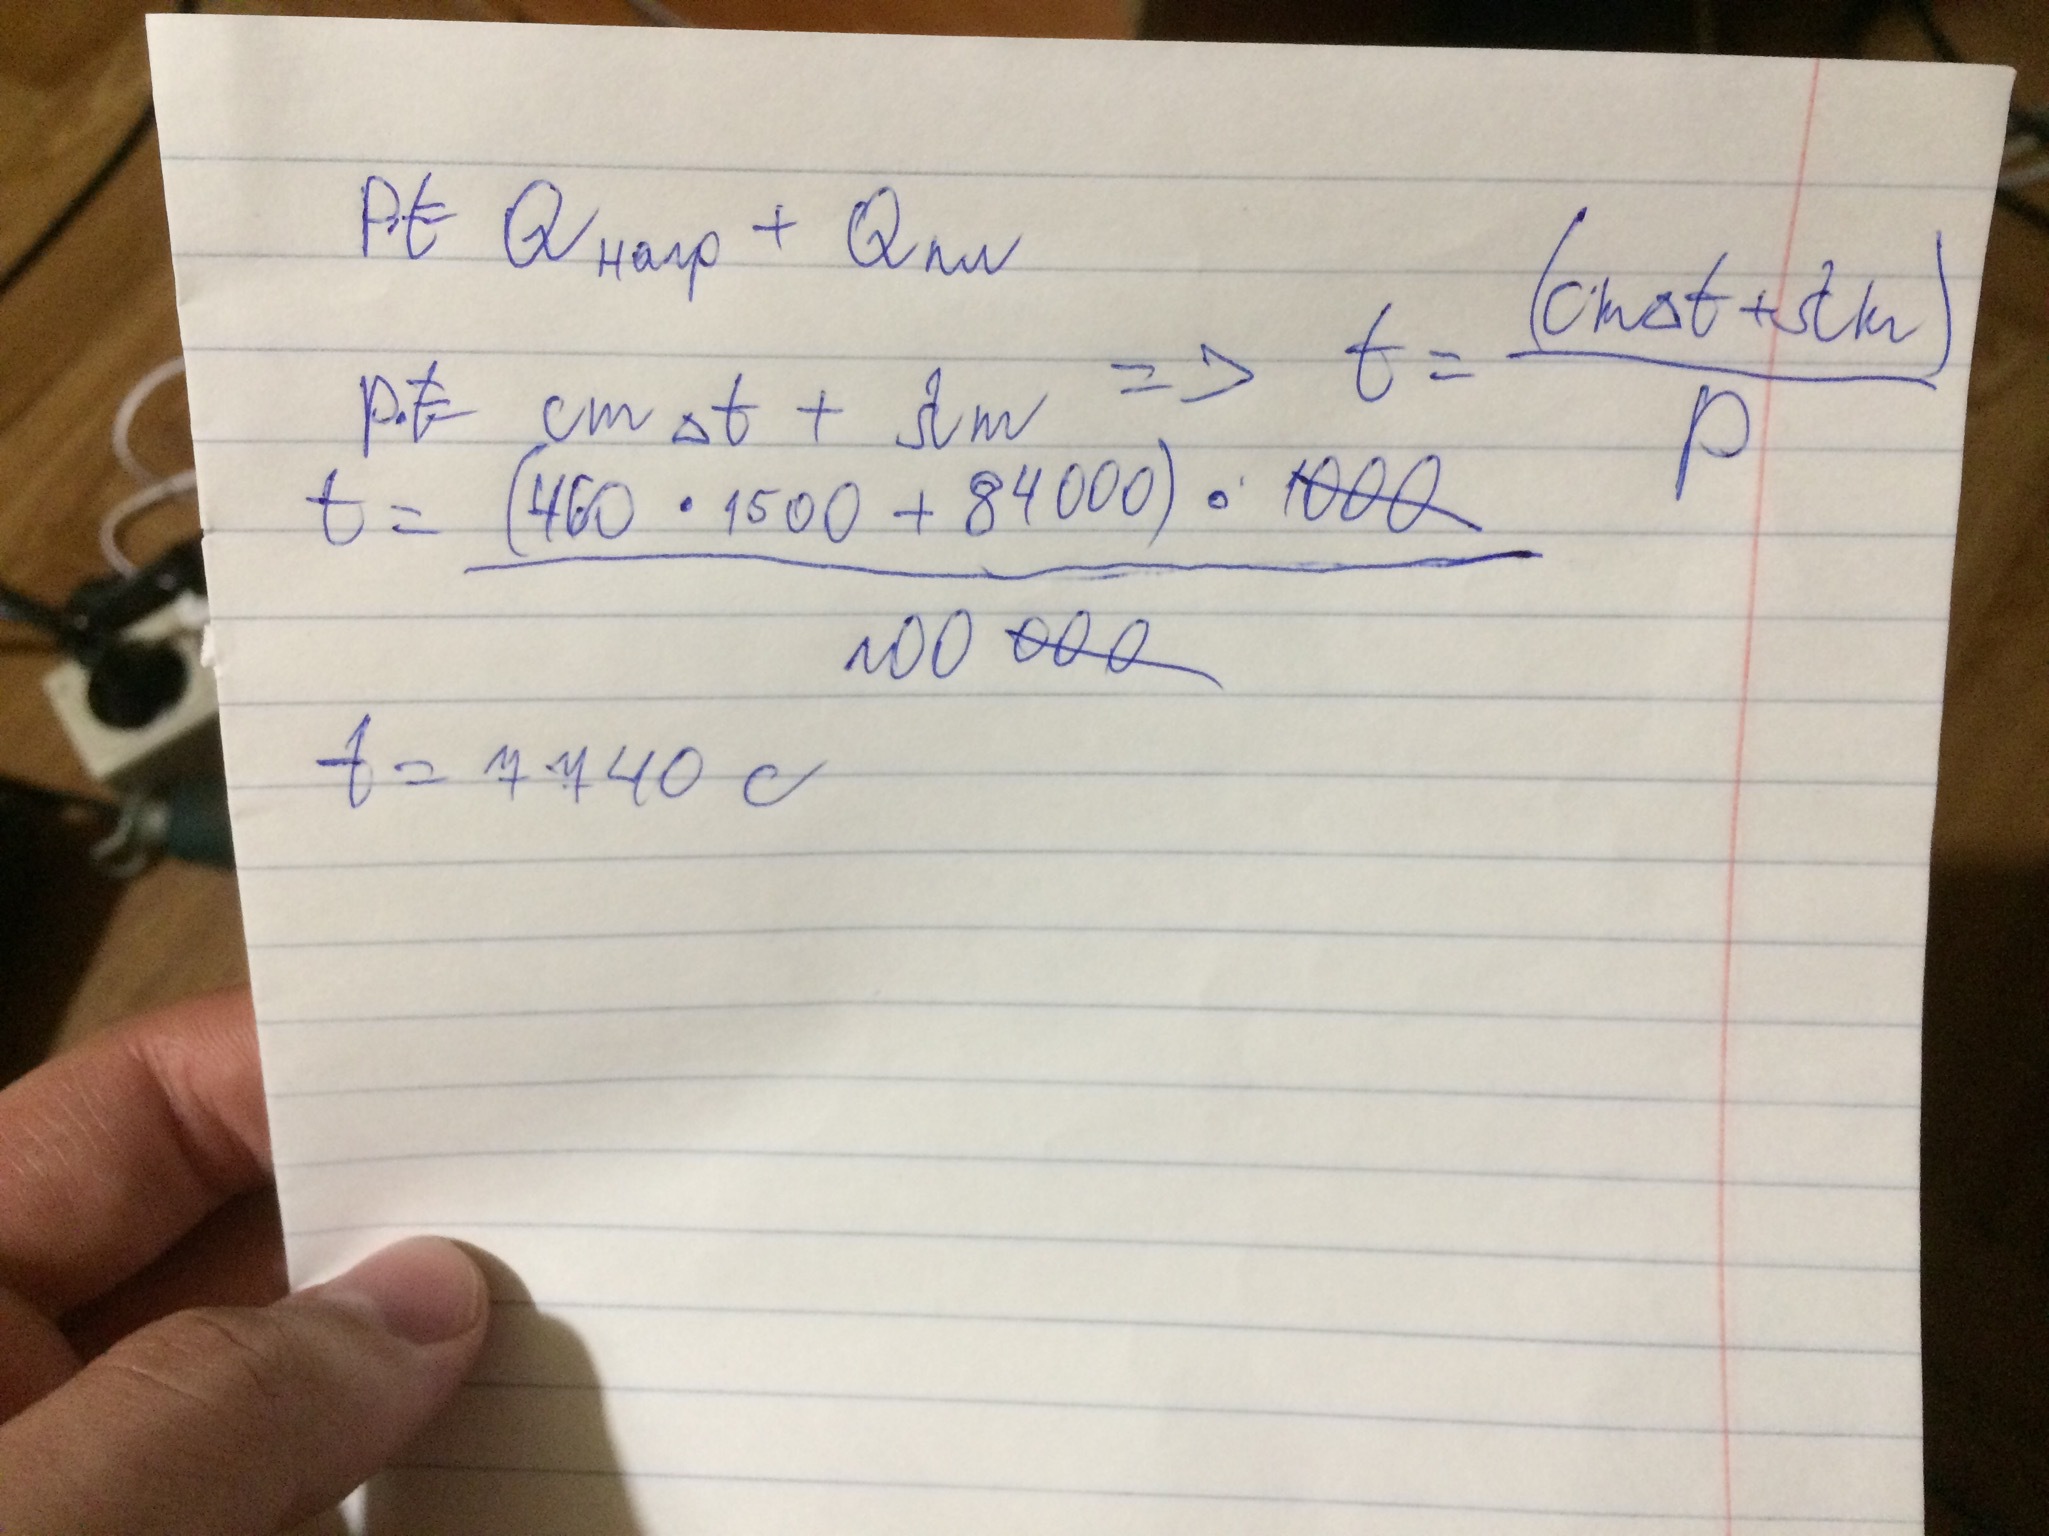 P·t= Qнагр + Qпл
p·t= cm Δt + λm => t = (cmΔt + λm) / p
t = (460 · 1500 + 84000) · 1000 / 100 000
t = 7740 c